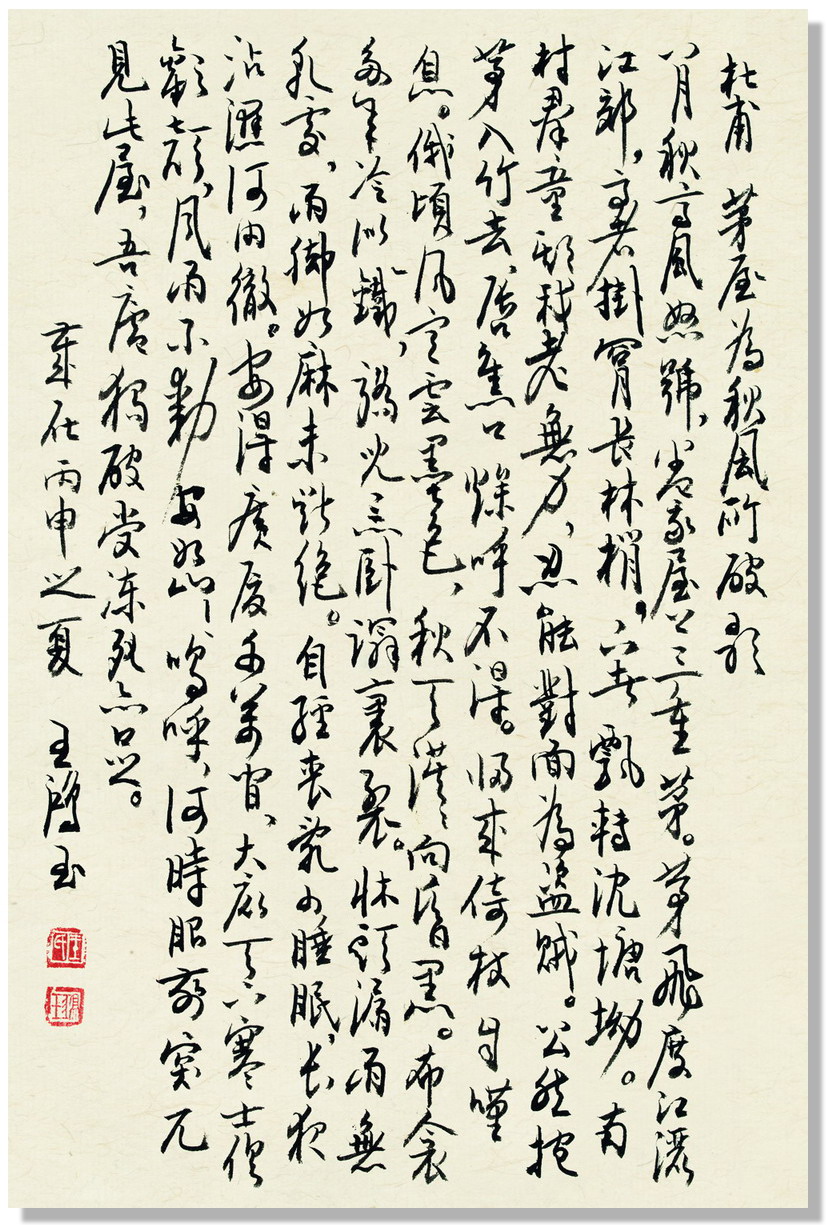 杜甫 茅屋為秋風所破歌
八月秋高風怒號，卷我屋上三重茅。茅飛度江灑
江郊，高者掛罥長林梢，下者飄轉沈塘坳。南
村群童欺我老無力，忍能對面為盜賊。公然抱
茅入竹去，唇焦口燥呼不得。歸來倚杖自嘆
息。俄頃風定雲黑色，秋天漠〻向昏黑。布衾
多年冷似鐵，驕兒惡臥蹋裏裂。牀頭漏雨無
乾處，雨腳如麻未斷絕。自經喪亂少睡眠，長夜
沾濕何由徹。安得廣廈千萬間，大庇天下寒士俱
歡顏，風雨不動安如山！嗚呼，何時眼前突兀
見此屋，吾廬獨破受凍死亦足。
歲在丙申之夏 王鴻玉